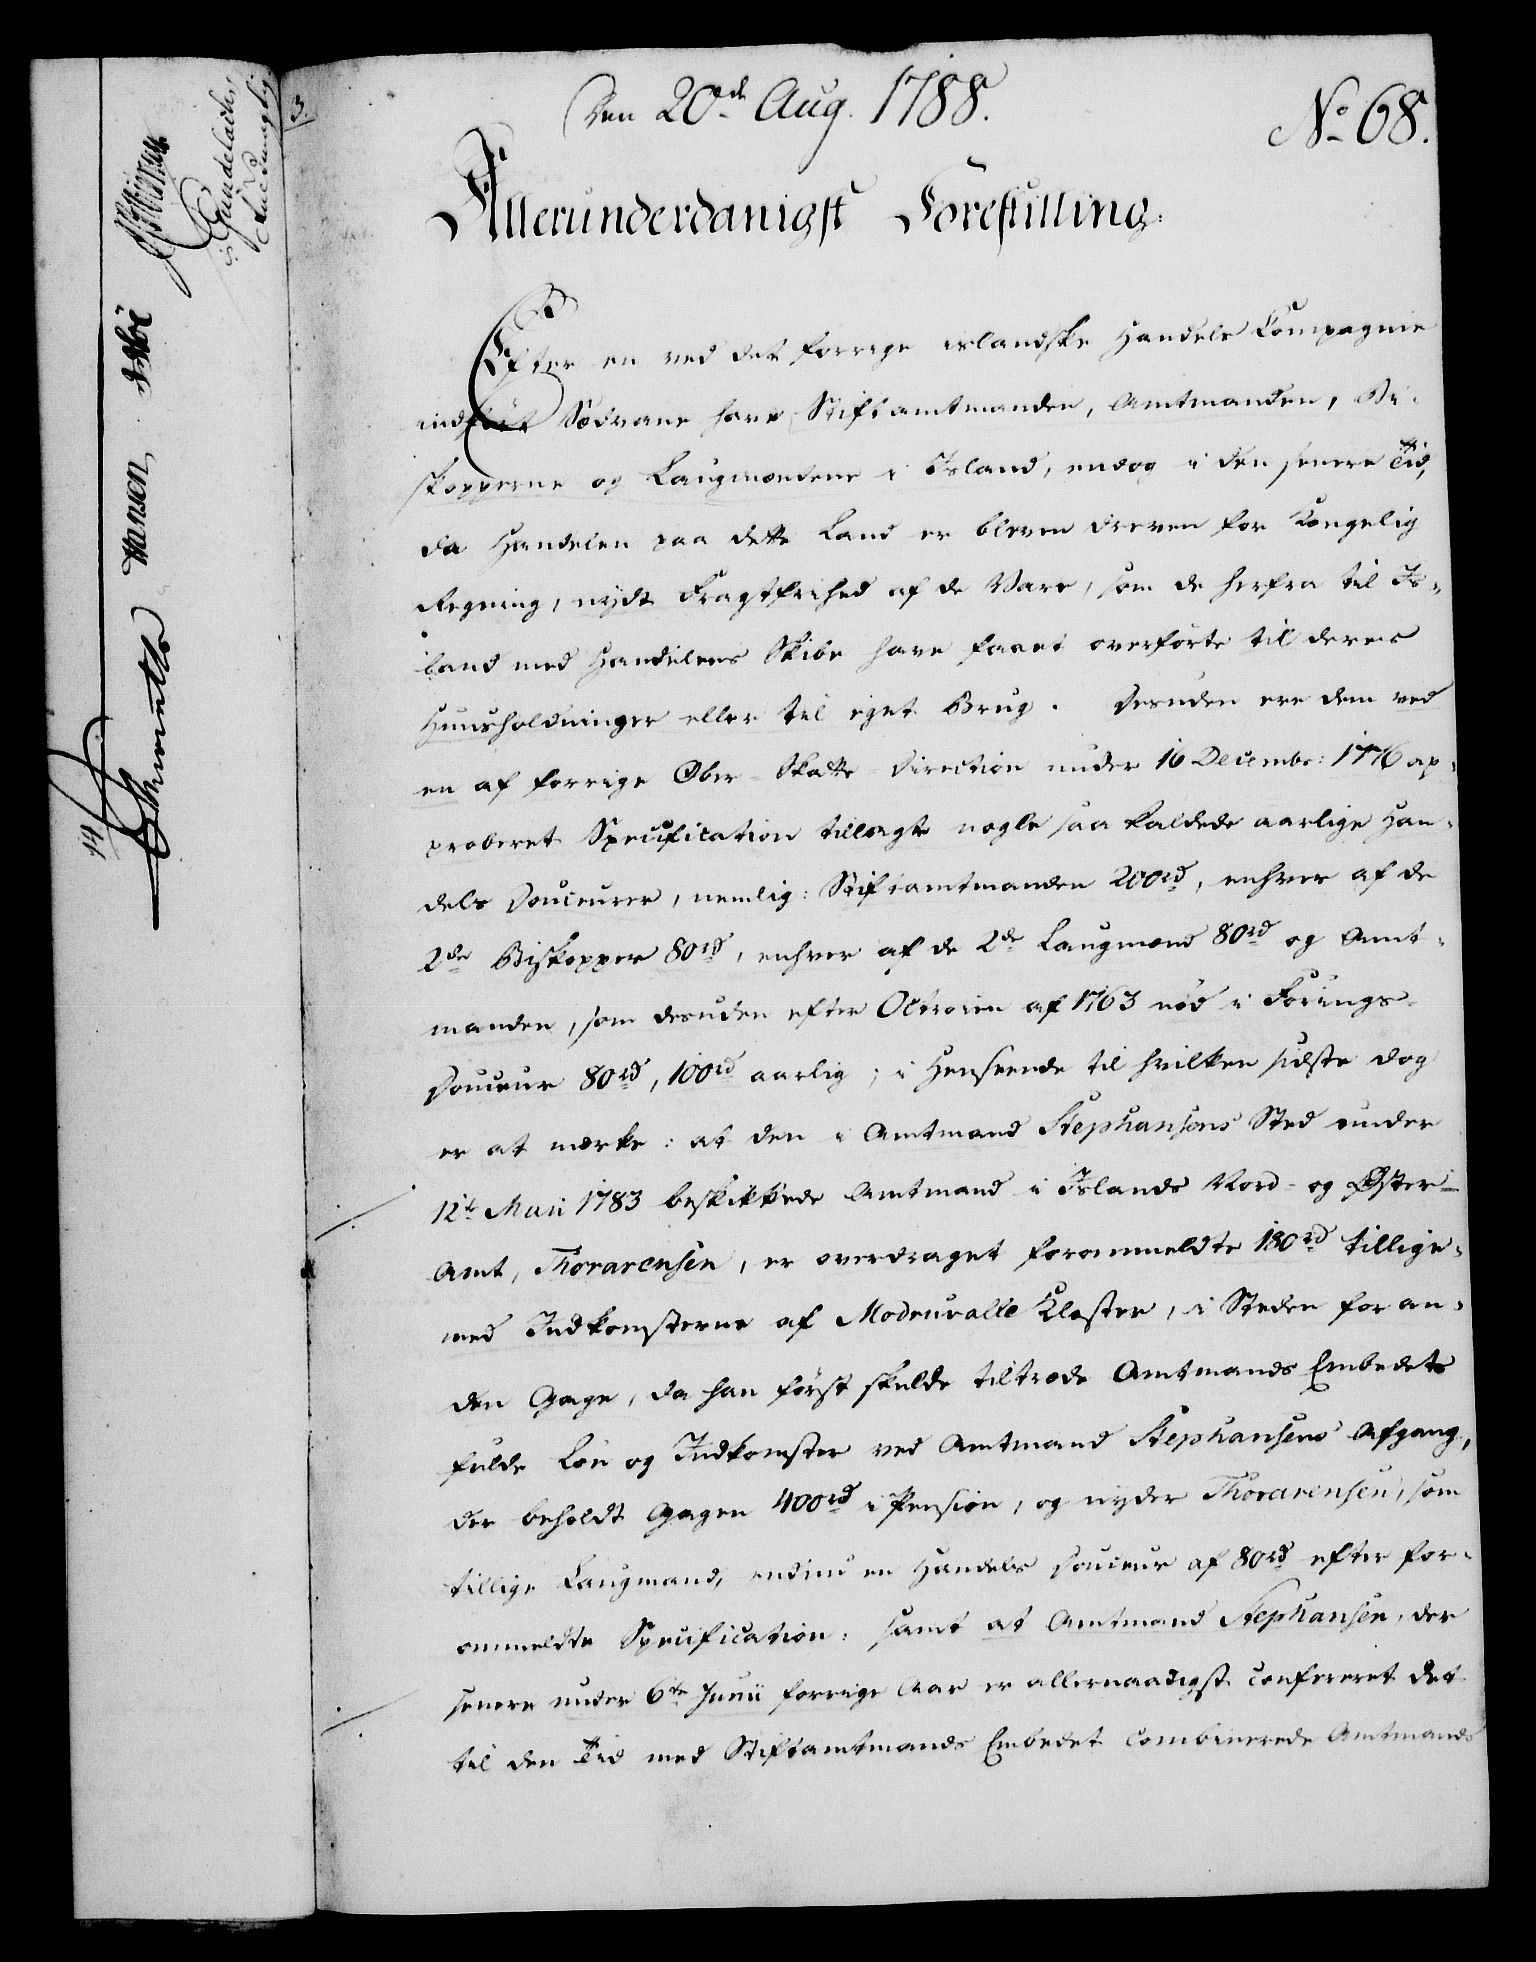 Den 20de Aug. 1788.
No 68.
Allerunderdanigst Forestilling.
Efter en ved det forrige islandske Handels Compagnie
indført Sædvane have Stiftamtmanden, Amtmanden, Bi-
skopperne og Laugmændene i Island, endog i den senere Tid,
da Handelen paa dette Land er bleven dreven for Kongelig
Regning, nydt Fragtfrihed af de Vare, som de herfra til Is-
land med Handelens Skibe have faaet overførte til deres
Huusholdninger eller til eget Brug. Desuden ere dem ved
en af forrige Ober-Skatte-Direction under 16 Decembr: 1776 ap-
proberet Specification tillagte nogle saa kaldede aarlige Han-
dels Douceurer, nemlig: Stiftamtmanden 200rd, enhver af de
2de Biskopper 80rd, enhver af de 2de Laugmænd 80rd og Amt-
manden, som desuden efter Octroien af 1763 nød i Førings-
Douceur 80rd, 100rd aarlig; i Henseende til hvilken sidste dog
er at mærke: at den i Amtmand Stephansens Sted under
12te Maii 1783 beskikkede Amtmand i Islands Nord- og Øster-
Amt, Thorarensen, er overdraget forommeldte 180rd tillige-
med Indkomsterne af Modruvalle Kloster, i Steden for an-
den Gage, da han først skulde tiltræde Amtmands Embedets
fulde Løn og Indkomster ved Amtmand Stephansens Afgang,
der beholdt Gagen 400rd i Pension, og nyder Thorarensen, som
tillige Laugmand, endnu en Handels Douceur af 80rd efter for-
ommeldte Specification: samt at Amtmand Stephansen, der
senere under 6te Junii forrige Aar er allernaadigst confereret det
til den Tid med Stiftamtmands Embedet combinerede Amtmands
Hansen
14
3.